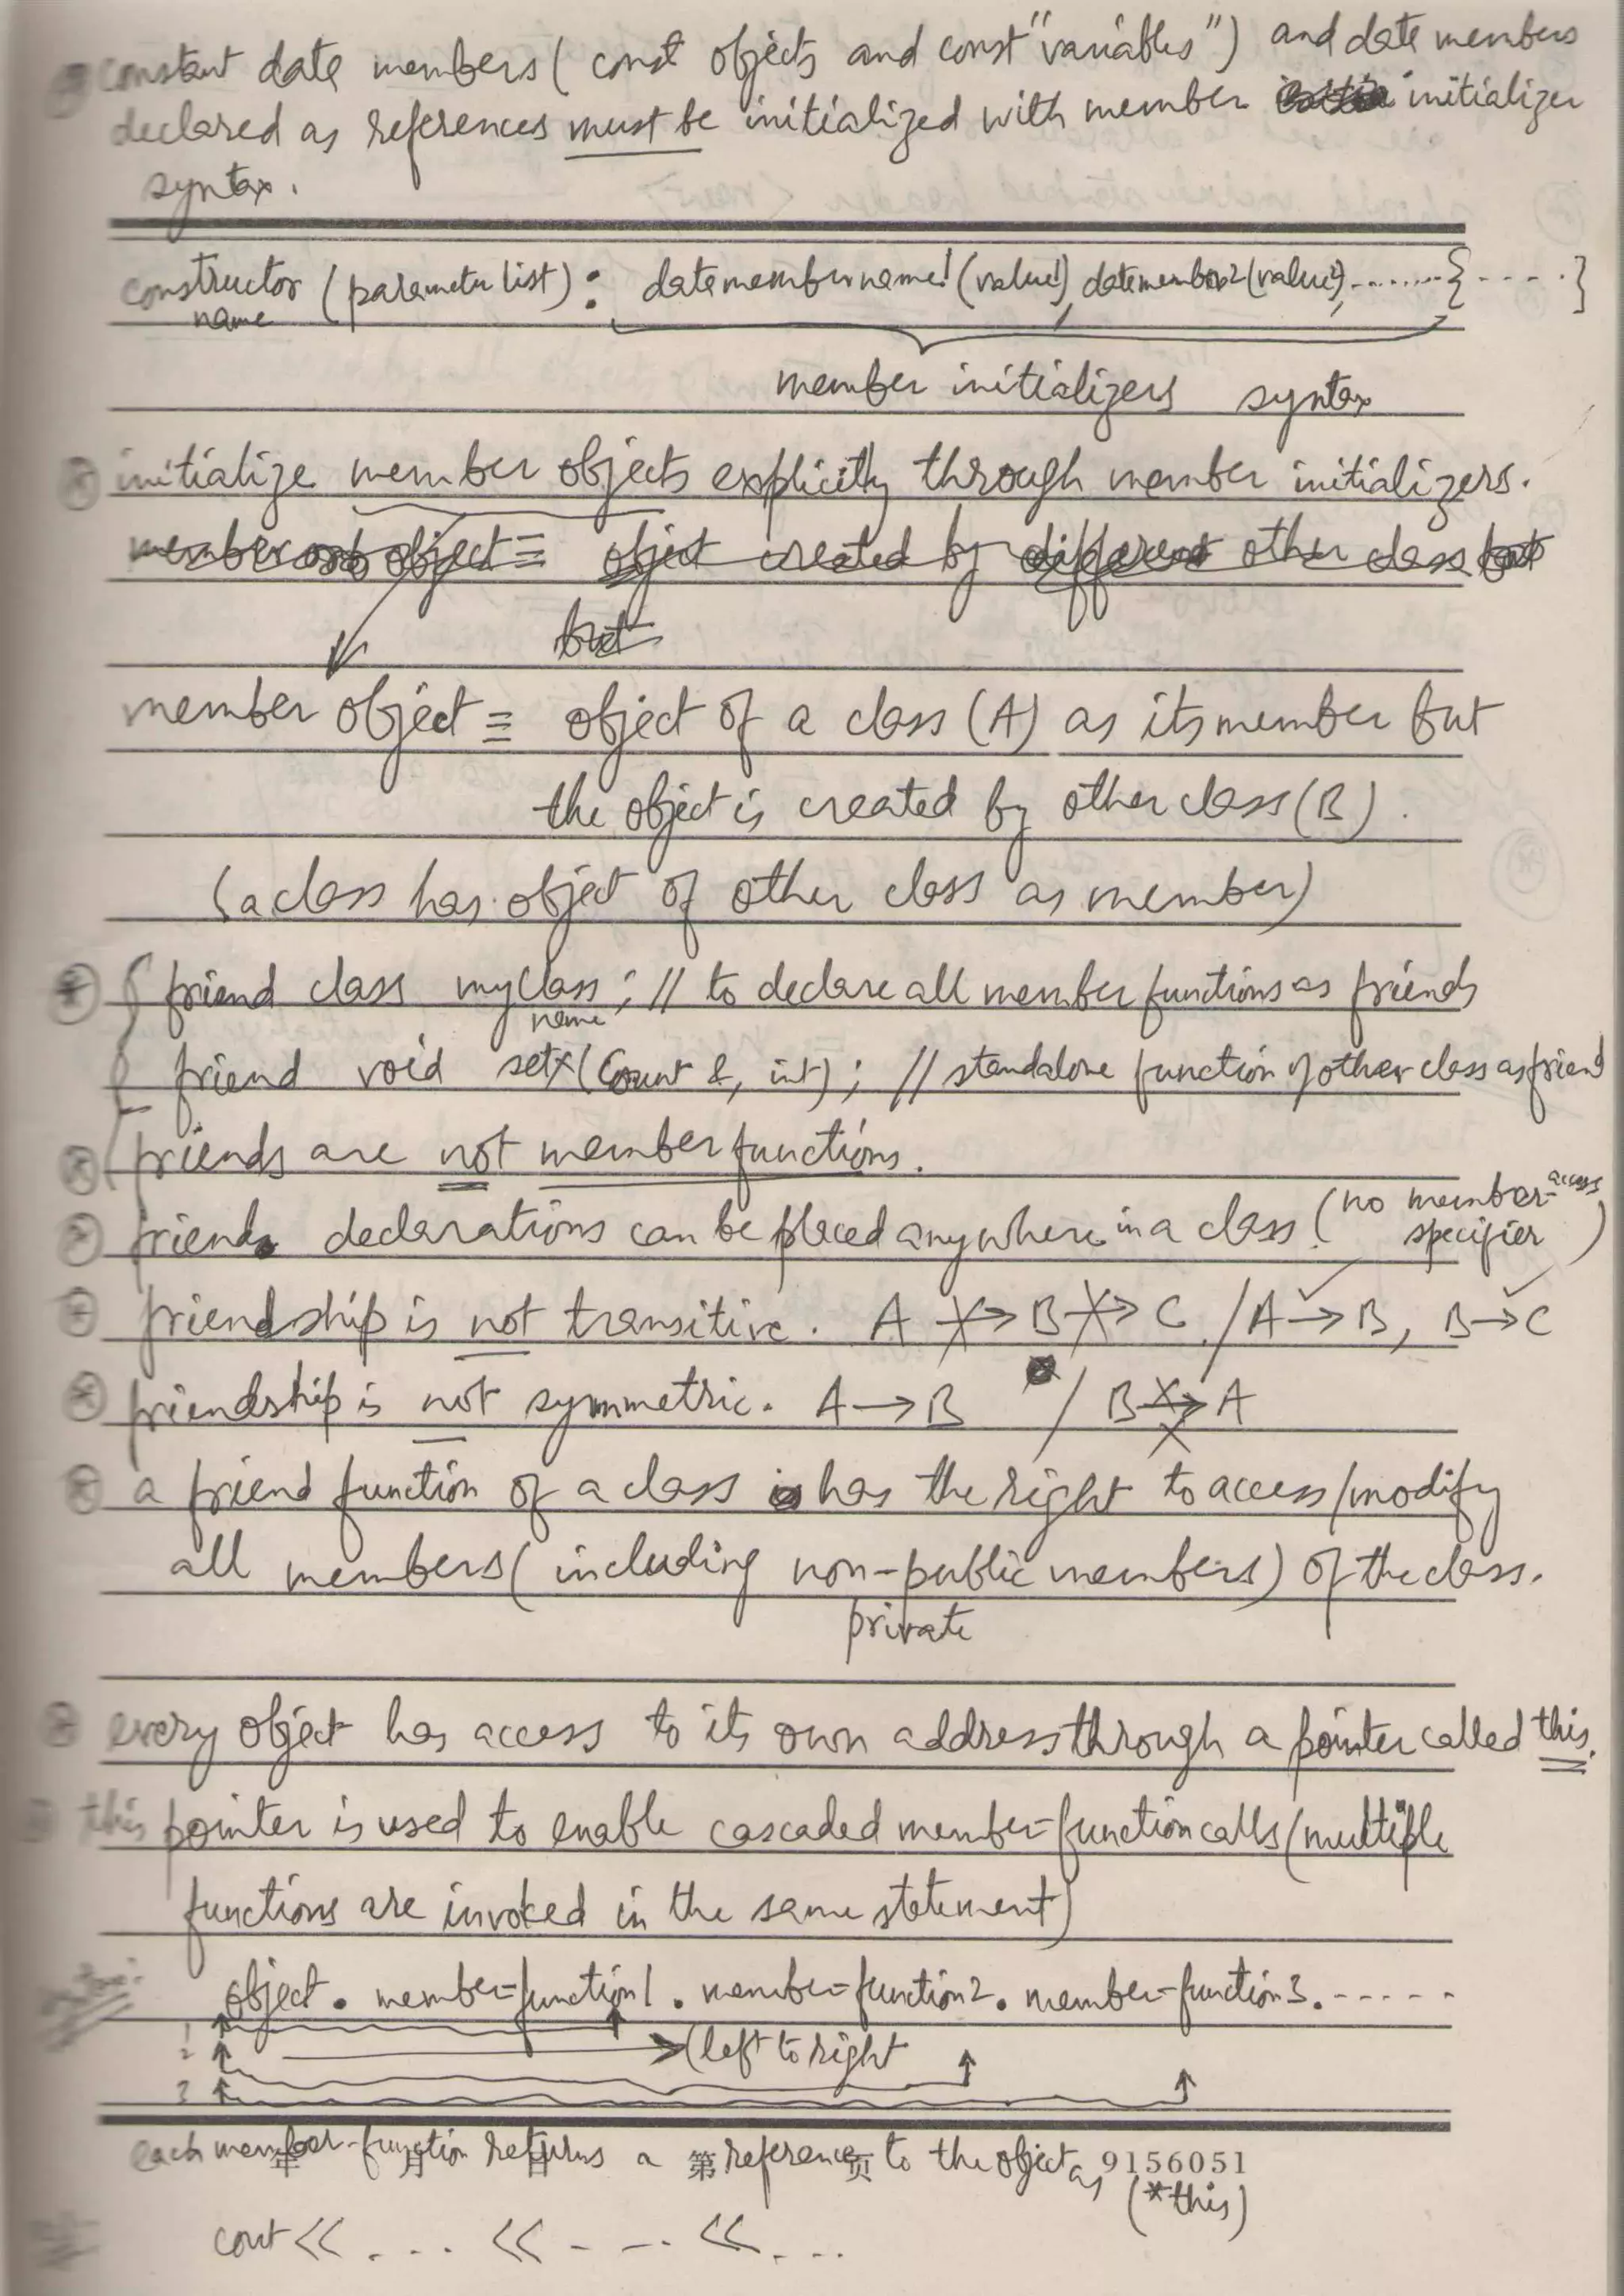 constant date members ( const objects and const "variables") and date members
declared as references must be initialized with member initializer
syntax.
constructor (parameter list) : datamembername1 (value1), datamember2 (value2), ........{ ..... }
name
member initializers syntax
initialize member objects explicitly through member initializers.
member object ≡ object created by different other class but
but
member object ≡ object of a class (A) as its member but
the object is created by other class (B).
(a class has object of other class as member)
friend class myclass ; // to declare all member functions as friends
name
friend void setx(Count &, int) ; // standalone function of other class as friend
friends are not member functions.
friend declarations can be placed anywhere in a class (no member-access
specifier)
friendship is not transitive. A → B → C / A → B, B → C
friendship is not symmetric. A → B / B → A
a friend function of a class has the right to access/modify
all members (including non-public members) of the class.
private
every object has access to its own address through a pointer called this.
this pointer is used to enable cascaded member-function calls (multiple
functions are invoked in the same statement)
object . member-function1 . member-function2 . member-function3 . - - - - -
1
2 (left to right
3
each member-function returns a reference to the object as (*this)
年 月 日 第 页 9156051
cout << . . . << - - - << . . .